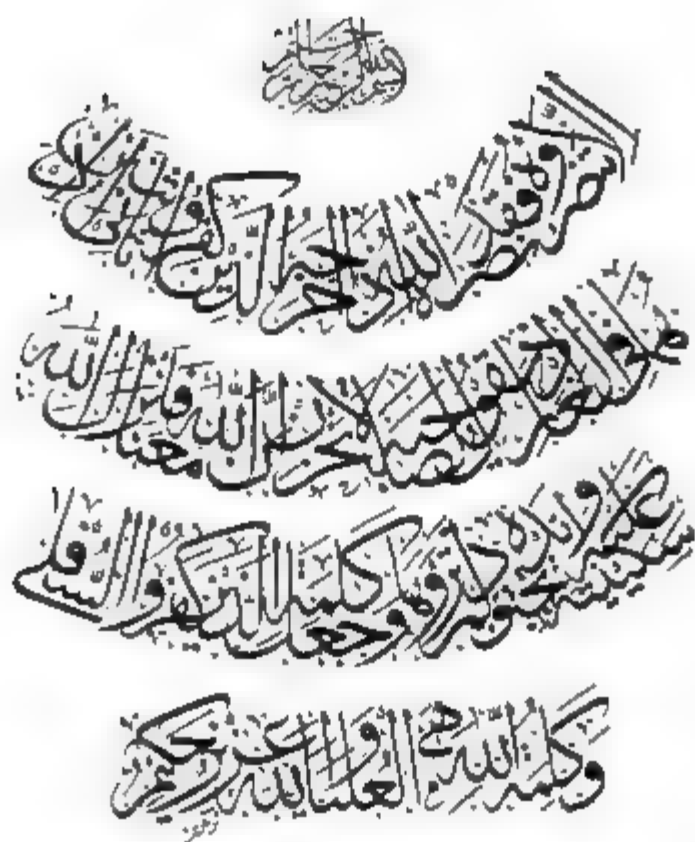 بسم الله الرحمن الرحيم
إلا تنصروه فقد نصره الله إذ أخرجه الذين كفروا ثاني اثنين إذ
هما في الغار إذ يقول لصاحبه لا تحزن إن الله معنا فأنزل الله
سكينته عليه وأيده بجنود لم تروها وجعل كلمة الذين كفروا السفلى
وكلمة الله هي العليا والله عزيز حكيم